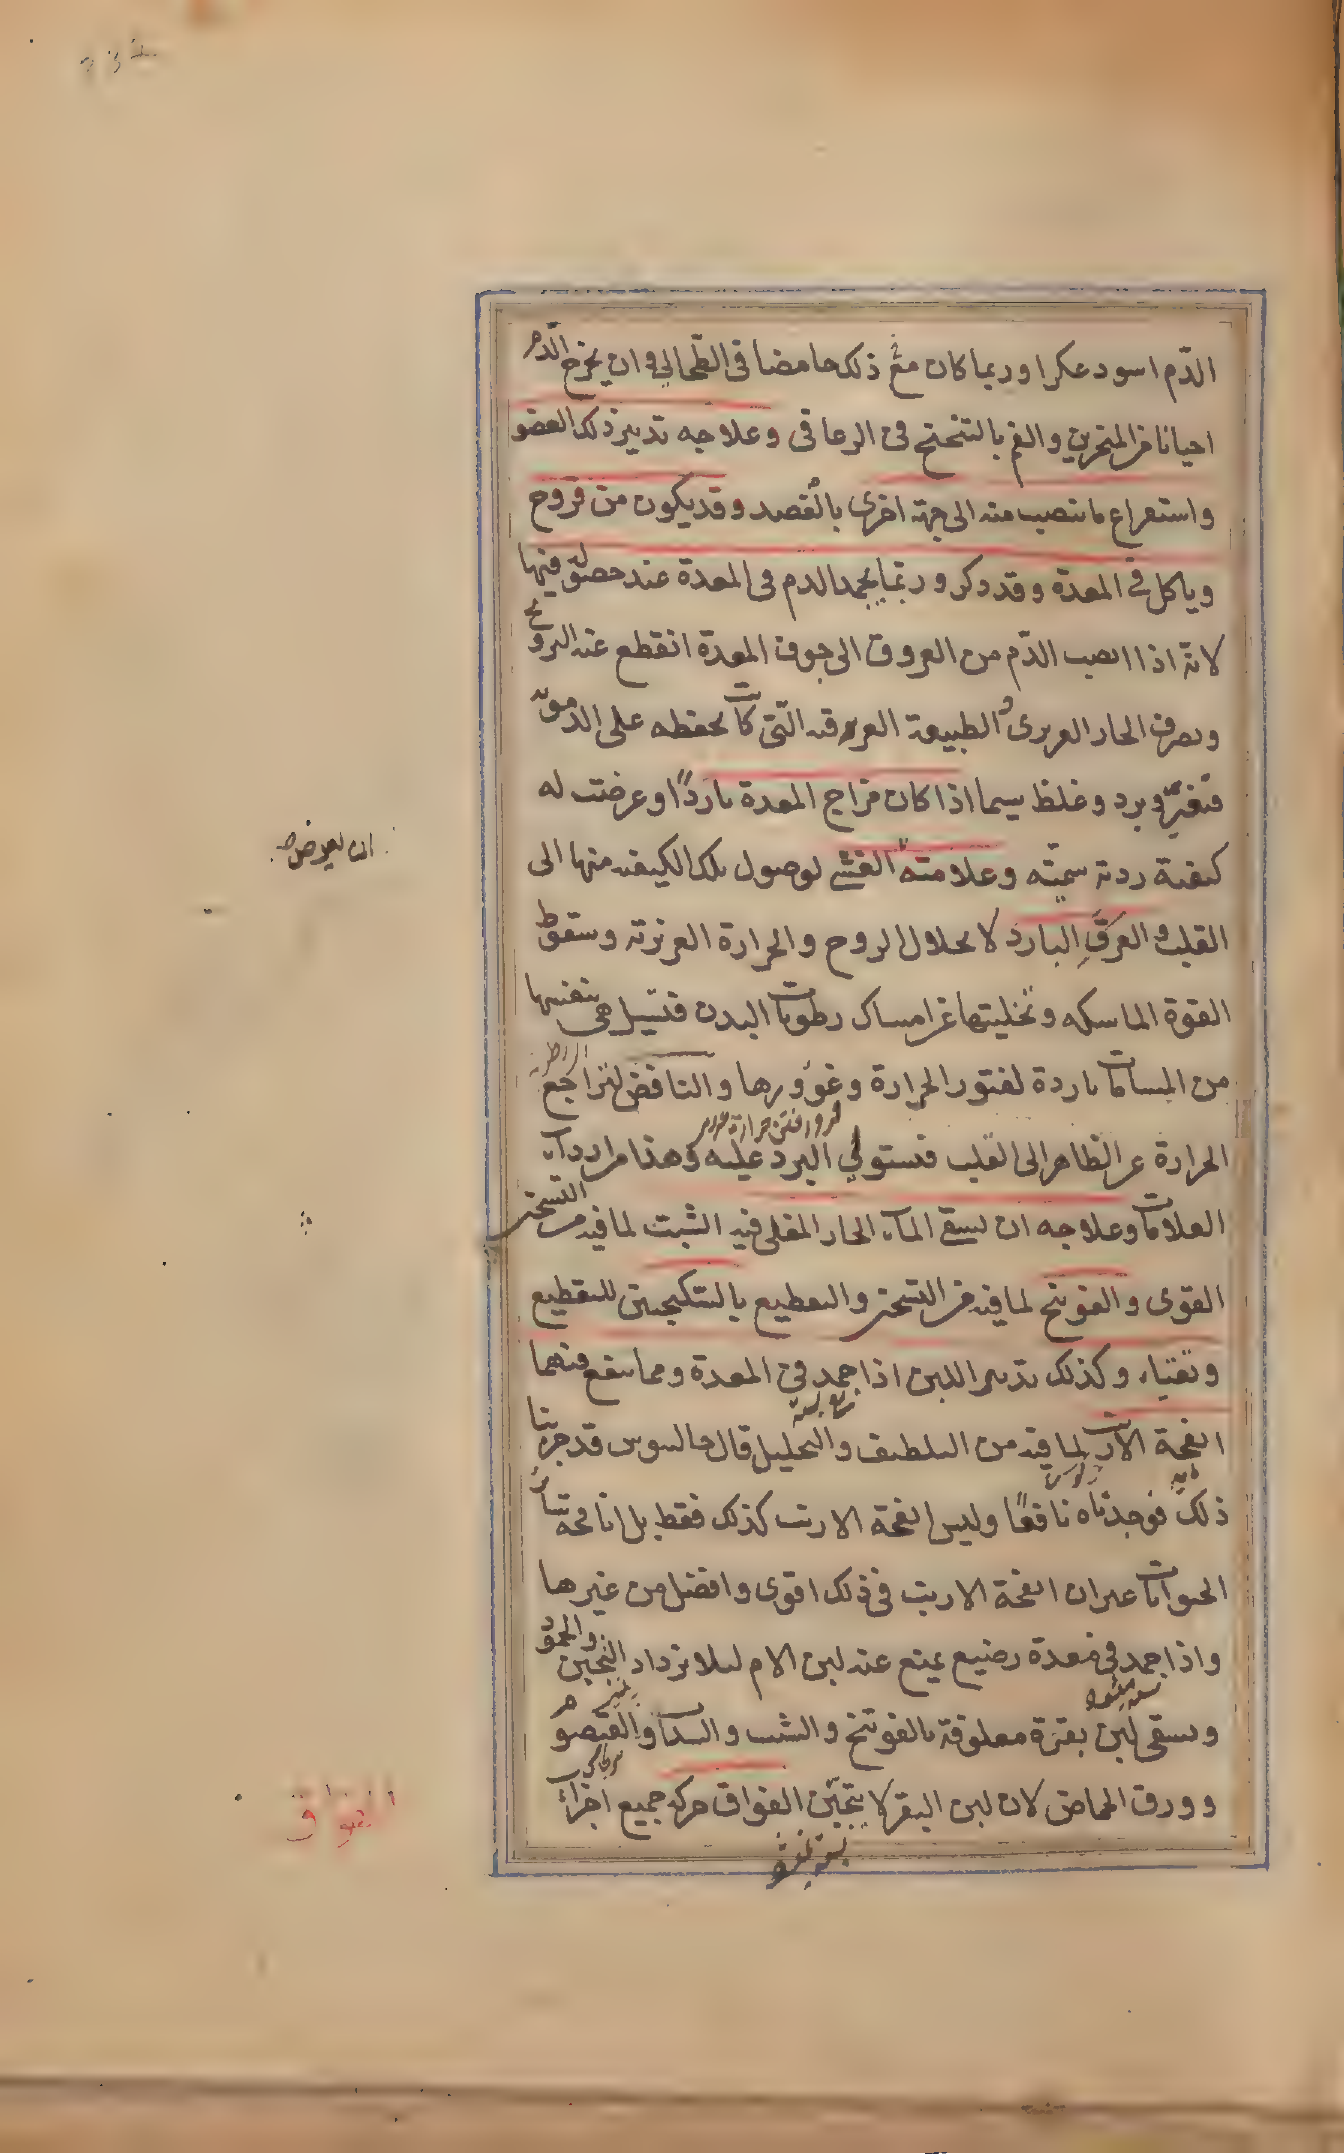 الدّم اسود عكرا وربما كان مع ذلك حامضا فى الطّحالى و ان يخرج الدّم
احيانا من المنخرين والفم بالتنخنح فى الرعافى وعلاجه تدبير ذلك العضو
واستفراغ ما ينصب منه الى جهة اخرى بالفصد وقد يكون من قروح
وياكل فى المعدة وقد ذكر وربما يجمد الدم فى المعدة عند حصوله فيها
لانه اذا انصب الدّم من العروق الى جوف المعدة انقطع عنه الروح
ويفرق الحار الغريزى والطبيعة العرقية التى كانت تحفظه على الدموية
فتغير وبرد وغلظ سيما اذا كان مزاج المعدة باردًا وعرضت له
كيفية ردية سمية وعلامته الغشى لوصول تلك الكيفية منها الى
القلب والعرق البارد لانحلال الروح والحرارة الغريزية وسقوط
القوة الماسكه وتخليتها عن امساك رطوبات البدن فتسيل هى بنفسها
من المسامات باردة لفتور الحرارة وغورها والنافض لتراجع
الحرارة عن الظاهر الى القلب فتستولى البرد عليه وهذا من اردأ
العلامات وعلاجه ان يسقى الماء الحار المغلى فيه الشبت لما فيه من التسخين
القوى والفوتنج لما فيه من التسخين والتقطيع بالسكنجبين للتقطيع
وتقيأ، وكذلك تدبير اللبن اذا جمد فى المعدة ومما ينفع منهما
انفحة الارنب لما فيه من التلطيف والتحليل قال جالينوس قد جربنا
ذلك فوجدناه نافعًا وليس انفحة الارنب كذلك فقط بل انافح سائر
الحيوانات غير ان انفحة الارنب فى ذلك اقوى وافضل من غيرها
واذا جمد فى معدة رضيع يمنع عنه لبن الام لئلا يزداد التجبن والجمود
ويسقى لبن بقرة معلوفة بالفوتنج والشبت والسداب والقيصوم
وورق الحماض لان لبن البقر لا يتجبن الفواق حركه جميع اجزاء
الفواق